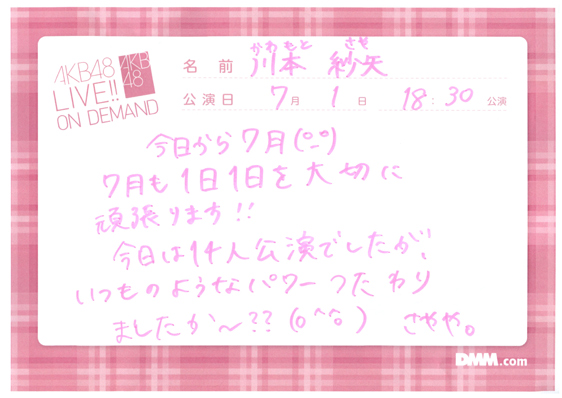 AKB48
LIVE!!
ON DEMAND
AKB
48
かわもと さや
名前 川本 紗矢
公演日 7月 1日 18:30 公演
今日から7月(°-°)
7月も1日1日を大切に
頑張ります!!
今日は14人公演でしたが、
いつものようなパワーつたわり
ましたか〜??(o^^o) さやや。
DMM.com